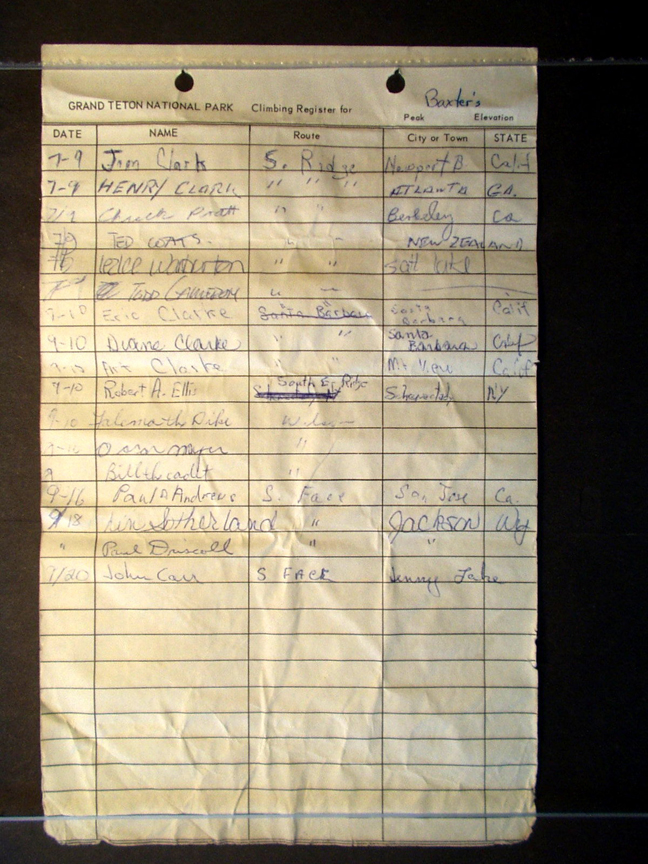 Baxter's
GRAND TETON NATIONAL PARK Climbing Register for Peak Elevation
DATE NAME Route City or Town STATE
7-9 Clark S. Ridge Newport B Calif
7-9 HENRY CLARK " " " ATLANTA GA.
Chuck Pratt " " Berkeley Ca
TED COATS. " " NEW ZEALAND
" " Salt lake
TODD CAMERON " "
9-10 Eric Clarke Santa Barbara Santa Barbara Calif
9-10 Diane Clarke " " Santa Barbara Calif
Clarke " " Mt View Calif
9-10 Robert A. Ellis South E. Ridge NY
9-10 Dike
"
Bill the cadet "
9-16 Paul D Andrews S. Face San Jose Ca.
9/18 Sotherland " Jackson Wy
" Paul Driscoll " "
9/20 John Carr S FACE Jenny Lake